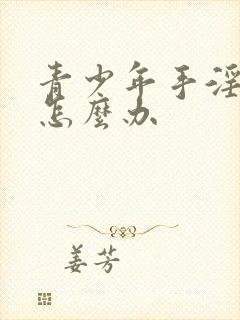 青少年手淫
怎麼办
姜芳